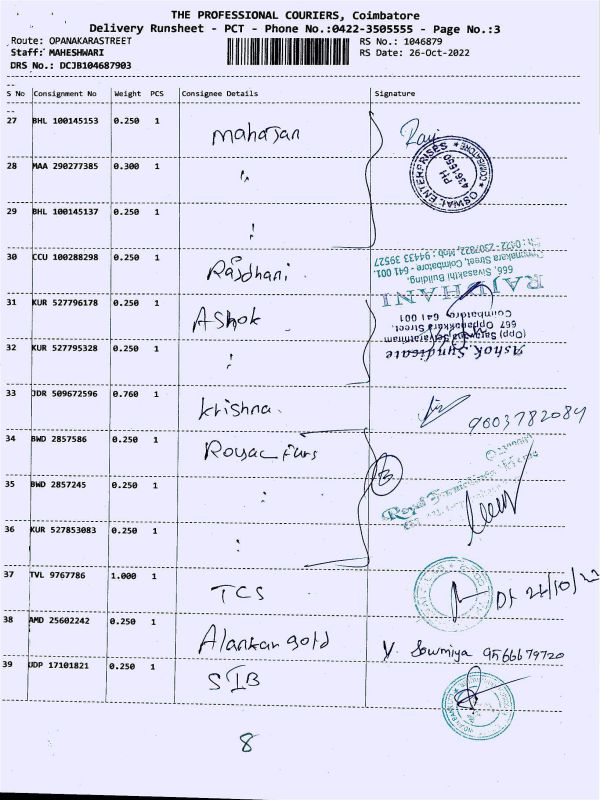 THE PROFESSIONAL COURIERS, Coimbatore
Delivery Runsheet - PCT - Phone No.:0422-3505555 - Page No.:3
Route: OPANAKARASTREET
RS No.: 1046879
Staff: MAHESHWARI
RS Date: 26-Oct-2022
DRS No.: DCJB104687903
S No Consignment No Weight PCS Consignee Details Signature
27 BHL 100145153 0.250 1 mahajan
28 MAA 290277385 0.300 1 "
29 BHL 100145137 0.250 1
OSWAL ENTERPRISES * COIMBATORE *
PH
4361550
30 CCU 100288298 0.250 1 Rajdhani
RAJDHANI
666, Sivasakthi Building,
Oppanakara Street, Coimbatore - 641 001.
Ph : 0422 - 2307822, Mob : 94433 39527
31 KUR 527796178 0.250 1 Ashok
32 KUR 527795328 0.250 1
Ashok Syndicate
667 Oppanakkara Street,
Coimbatore 641 001
33 JDR 509672596 0.760 1 krishna. 9003782084
34 BWD 2857586 0.250 1
35 BWD 2857245 0.250 1
3
36 KUR 527853083 0.250 1
37 TVL 9767786 1.000 1 TCS
38 AMD 25602242 0.250 1 Alankar gold V. Sowmiya 9566679720
39 UDP 17101821 0.250 1 SIB
8